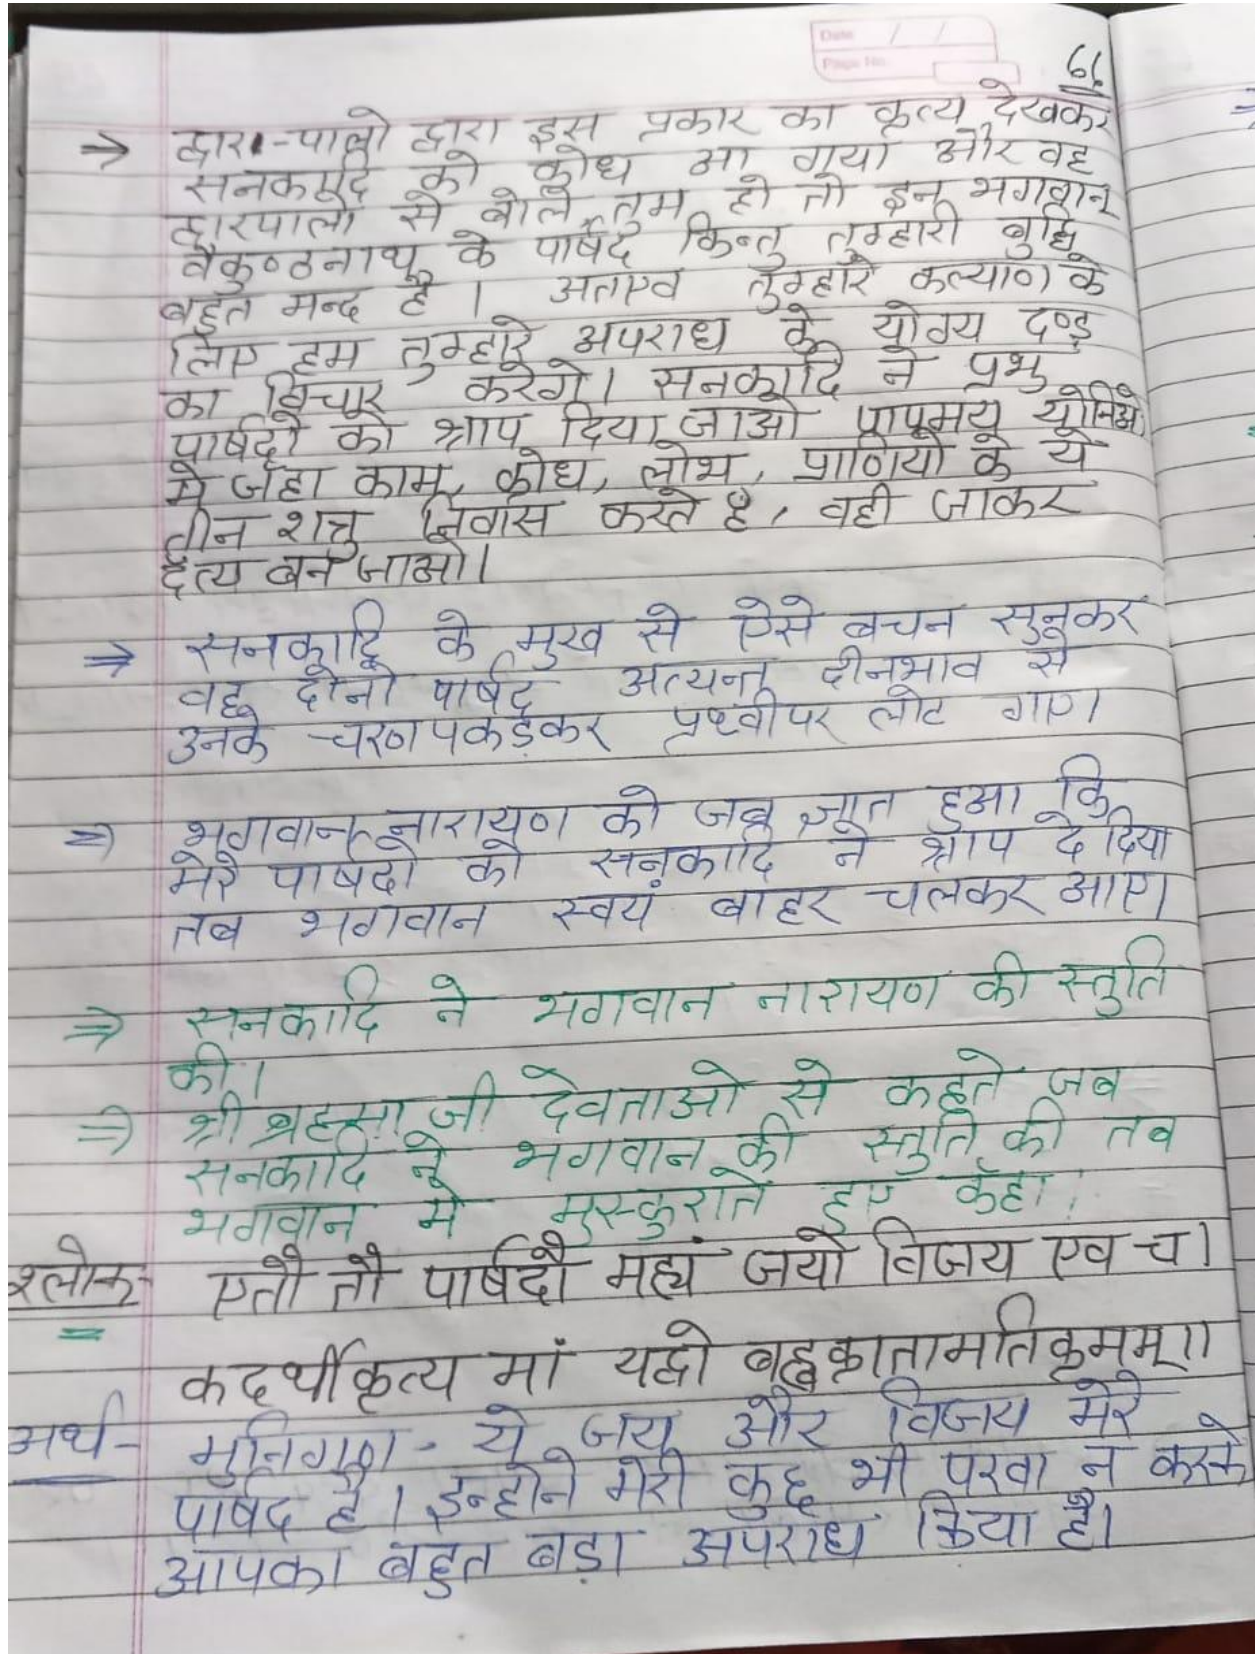 Date / /
Page No.
61
⇒ द्वार-पालो द्वारा इस प्रकार का कृत्य देखकर
सनकादि को क्रोध आ गया और वह
द्वारपालो से बोले तुम हो तो इन भगवान्
वैकुण्ठनाथ के पार्षद किन्तु तुम्हारी बुद्धि
बहुत मन्द है। अतएव तुम्हारे कल्याण के
लिए हम तुम्हारे अपराध के योग्य दण्ड
का विचार करेगे। सनकादि ने प्रभु
पार्षदो को श्राप दिया जाओ पापमय योनिओ
मे जहा काम, क्रोध, लोभ, प्राणियो के ये
तीन शत्रु निवास करते है, वही जाकर
दैत्य बन जाओ।
⇒ सनकादि के मुख से ऐसे बचन सुनकर
वह दोनो पार्षद अत्यन्त दीनभाव से
उनके चरण पकड़कर प्रथ्वीपर लोट गए।
⇒ भगवान नारायण को जब ज्ञात हुआ कि
मेरे पार्षदो को सनकादि ने श्राप दे दिया
तब भगवान स्वयं बाहर चलकर आए।
⇒ सनकादि ने भगवान नारायण की स्तुति
की।
⇒ श्री ब्रहमा जी देवताओ से कहते जब
सनकादि ने भगवान की स्तुति की तब
भगवान मे मुस्कुराते हुए कहा।
श्लोक- एतौ तौ पार्षदौ मह्यं जयो विजय एव च।
कदर्थीकृत्य मां यद्वो बह्वक्रातामतिक्रमम्॥
अर्थ- मुनिगण- ये जय और विजय मेरे
पार्षद है। इन्होने मेरी कुछ भी परवा न करके
आपका बहुत बड़ा अपराध किया है।